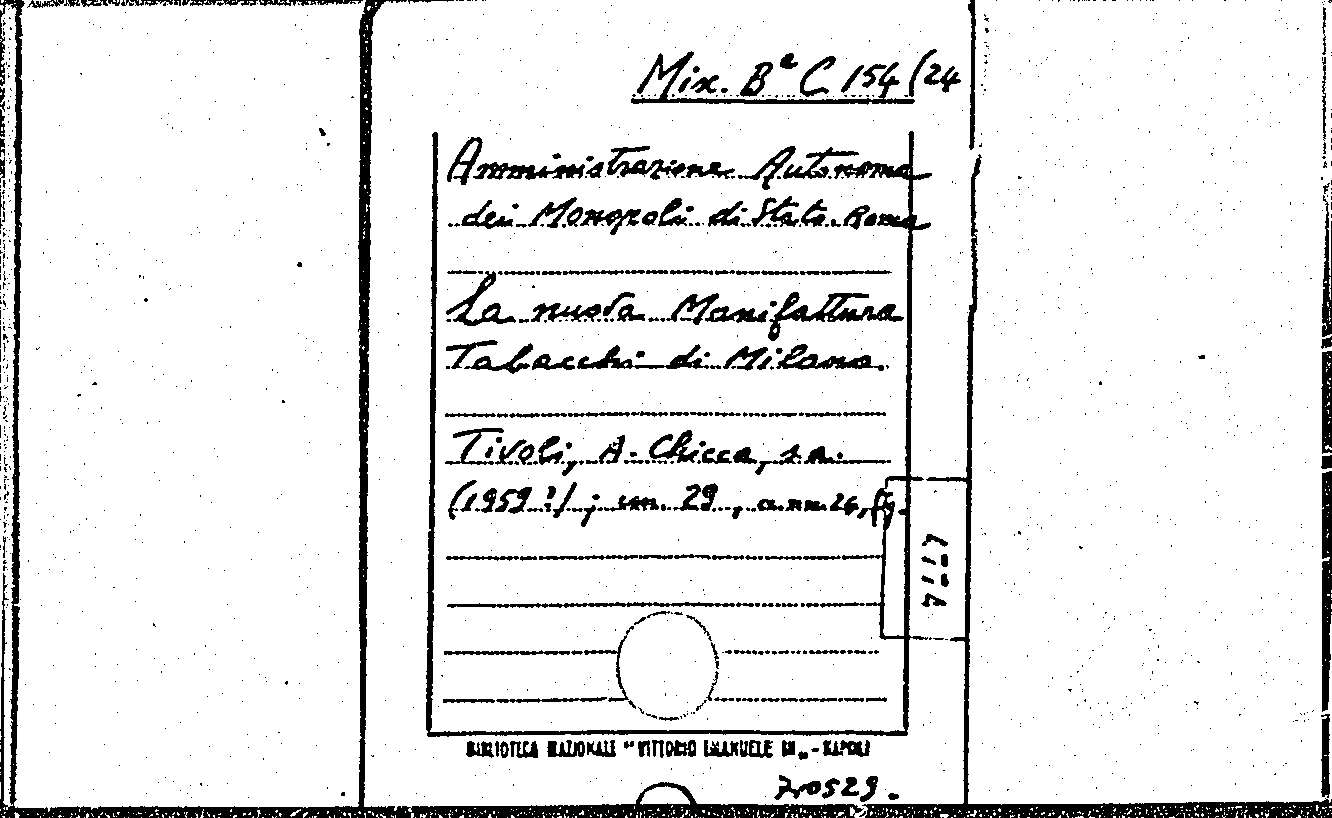 Mix. Bª C 154 (24
Amministrazione Autonoma
dei Monopoli di Stato. Roma
La nuova Manifattura
Tabacchi di Milano.
Tivoli, A. Chicca, s.a.
(1959?); cm. 29, cc.nn. 26, fig.
BIBLIOTECA NAZIONALE "VITTORIO EMANUELE III" - NAPOLI